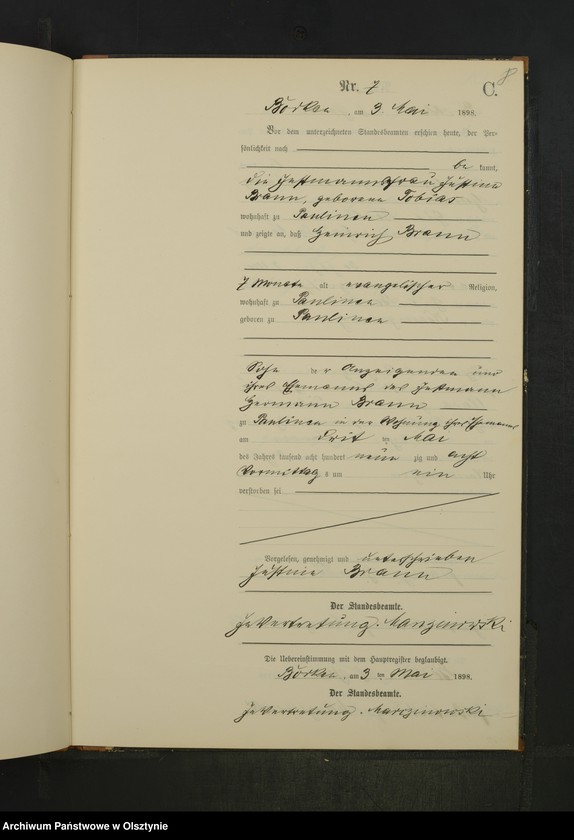 8
Nr. 7 C.
Borken, am 3. Mai 1898.
Vor dem unterzeichneten Standesbeamten erschien heute, der Per-
sönlichkeit nach
be kannt,
die Justine
Braun, geborene Tobias
wohnhaft zu Paulinen
und zeigte an, daß Heinrich Braun
7 Monate alt evangelischer Religion,
wohnhaft zu Paulinen
geboren zu Paulinen
Sohn der Anzeigenden und
ihres Ehemanns des
Hermann Braun
zu Paulinen in der Wohnung ihres Ehemanns
am drit ten Mai
des Jahres tausend acht hundert neun zig und acht
Vormittag s um ein Uhr
verstorben sei
Vorgelesen, genehmigt und unterschrieben
Justine Braun
Der Standesbeamte.
In Vertretung. Marzinowski
Die Uebereinstimmung mit dem Hauptregister beglaubigt.
Borken, am 3 ten Mai 1898.
Der Standesbeamte.
In Vertretung. Marczinowski
Archiwum Państwowe w Olsztynie